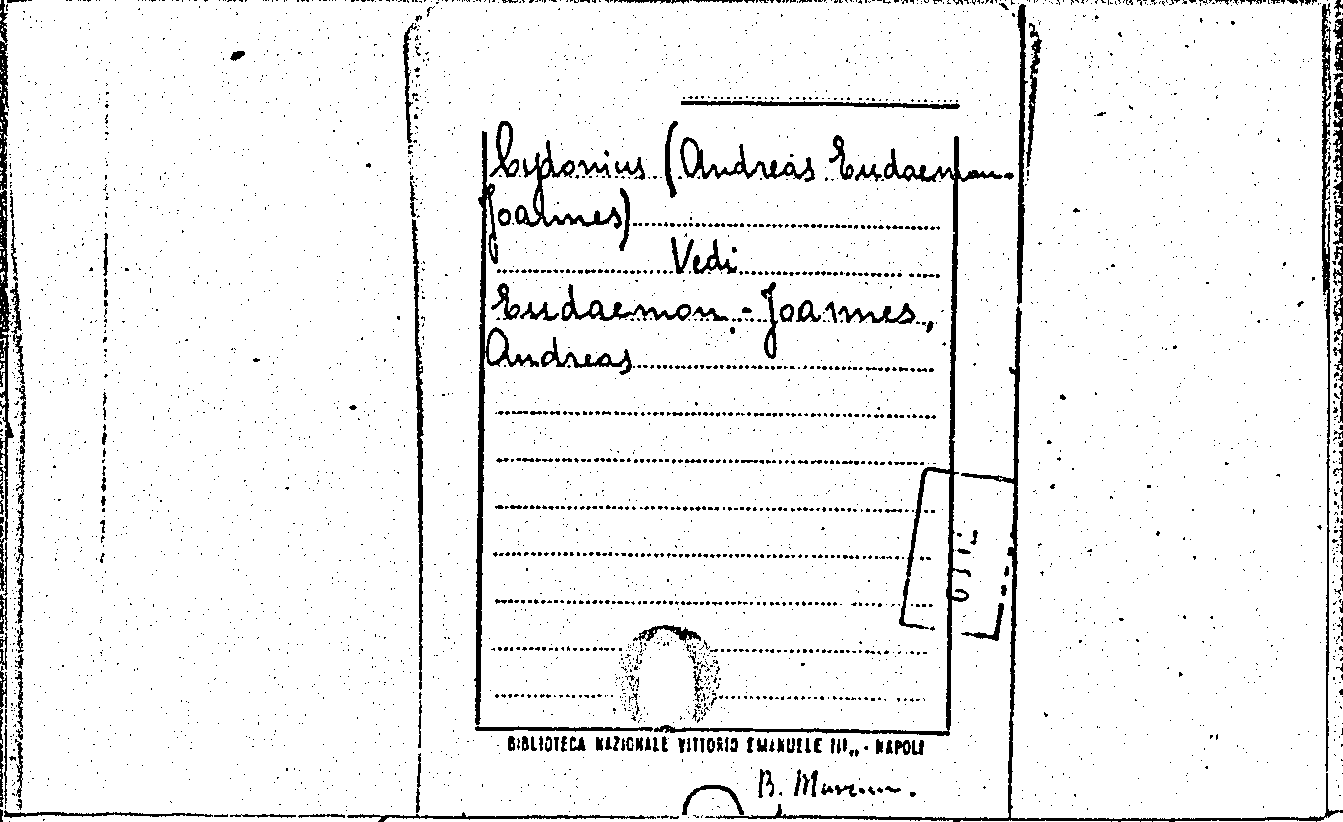 Cydonius (Andreas Eudaemon-
Joannes)
Vedi
Eudaemon-Joannes,
Andreas
BIBLIOTECA NAZIONALE VITTORIO EMANUELE III„ - NAPOLI
B.